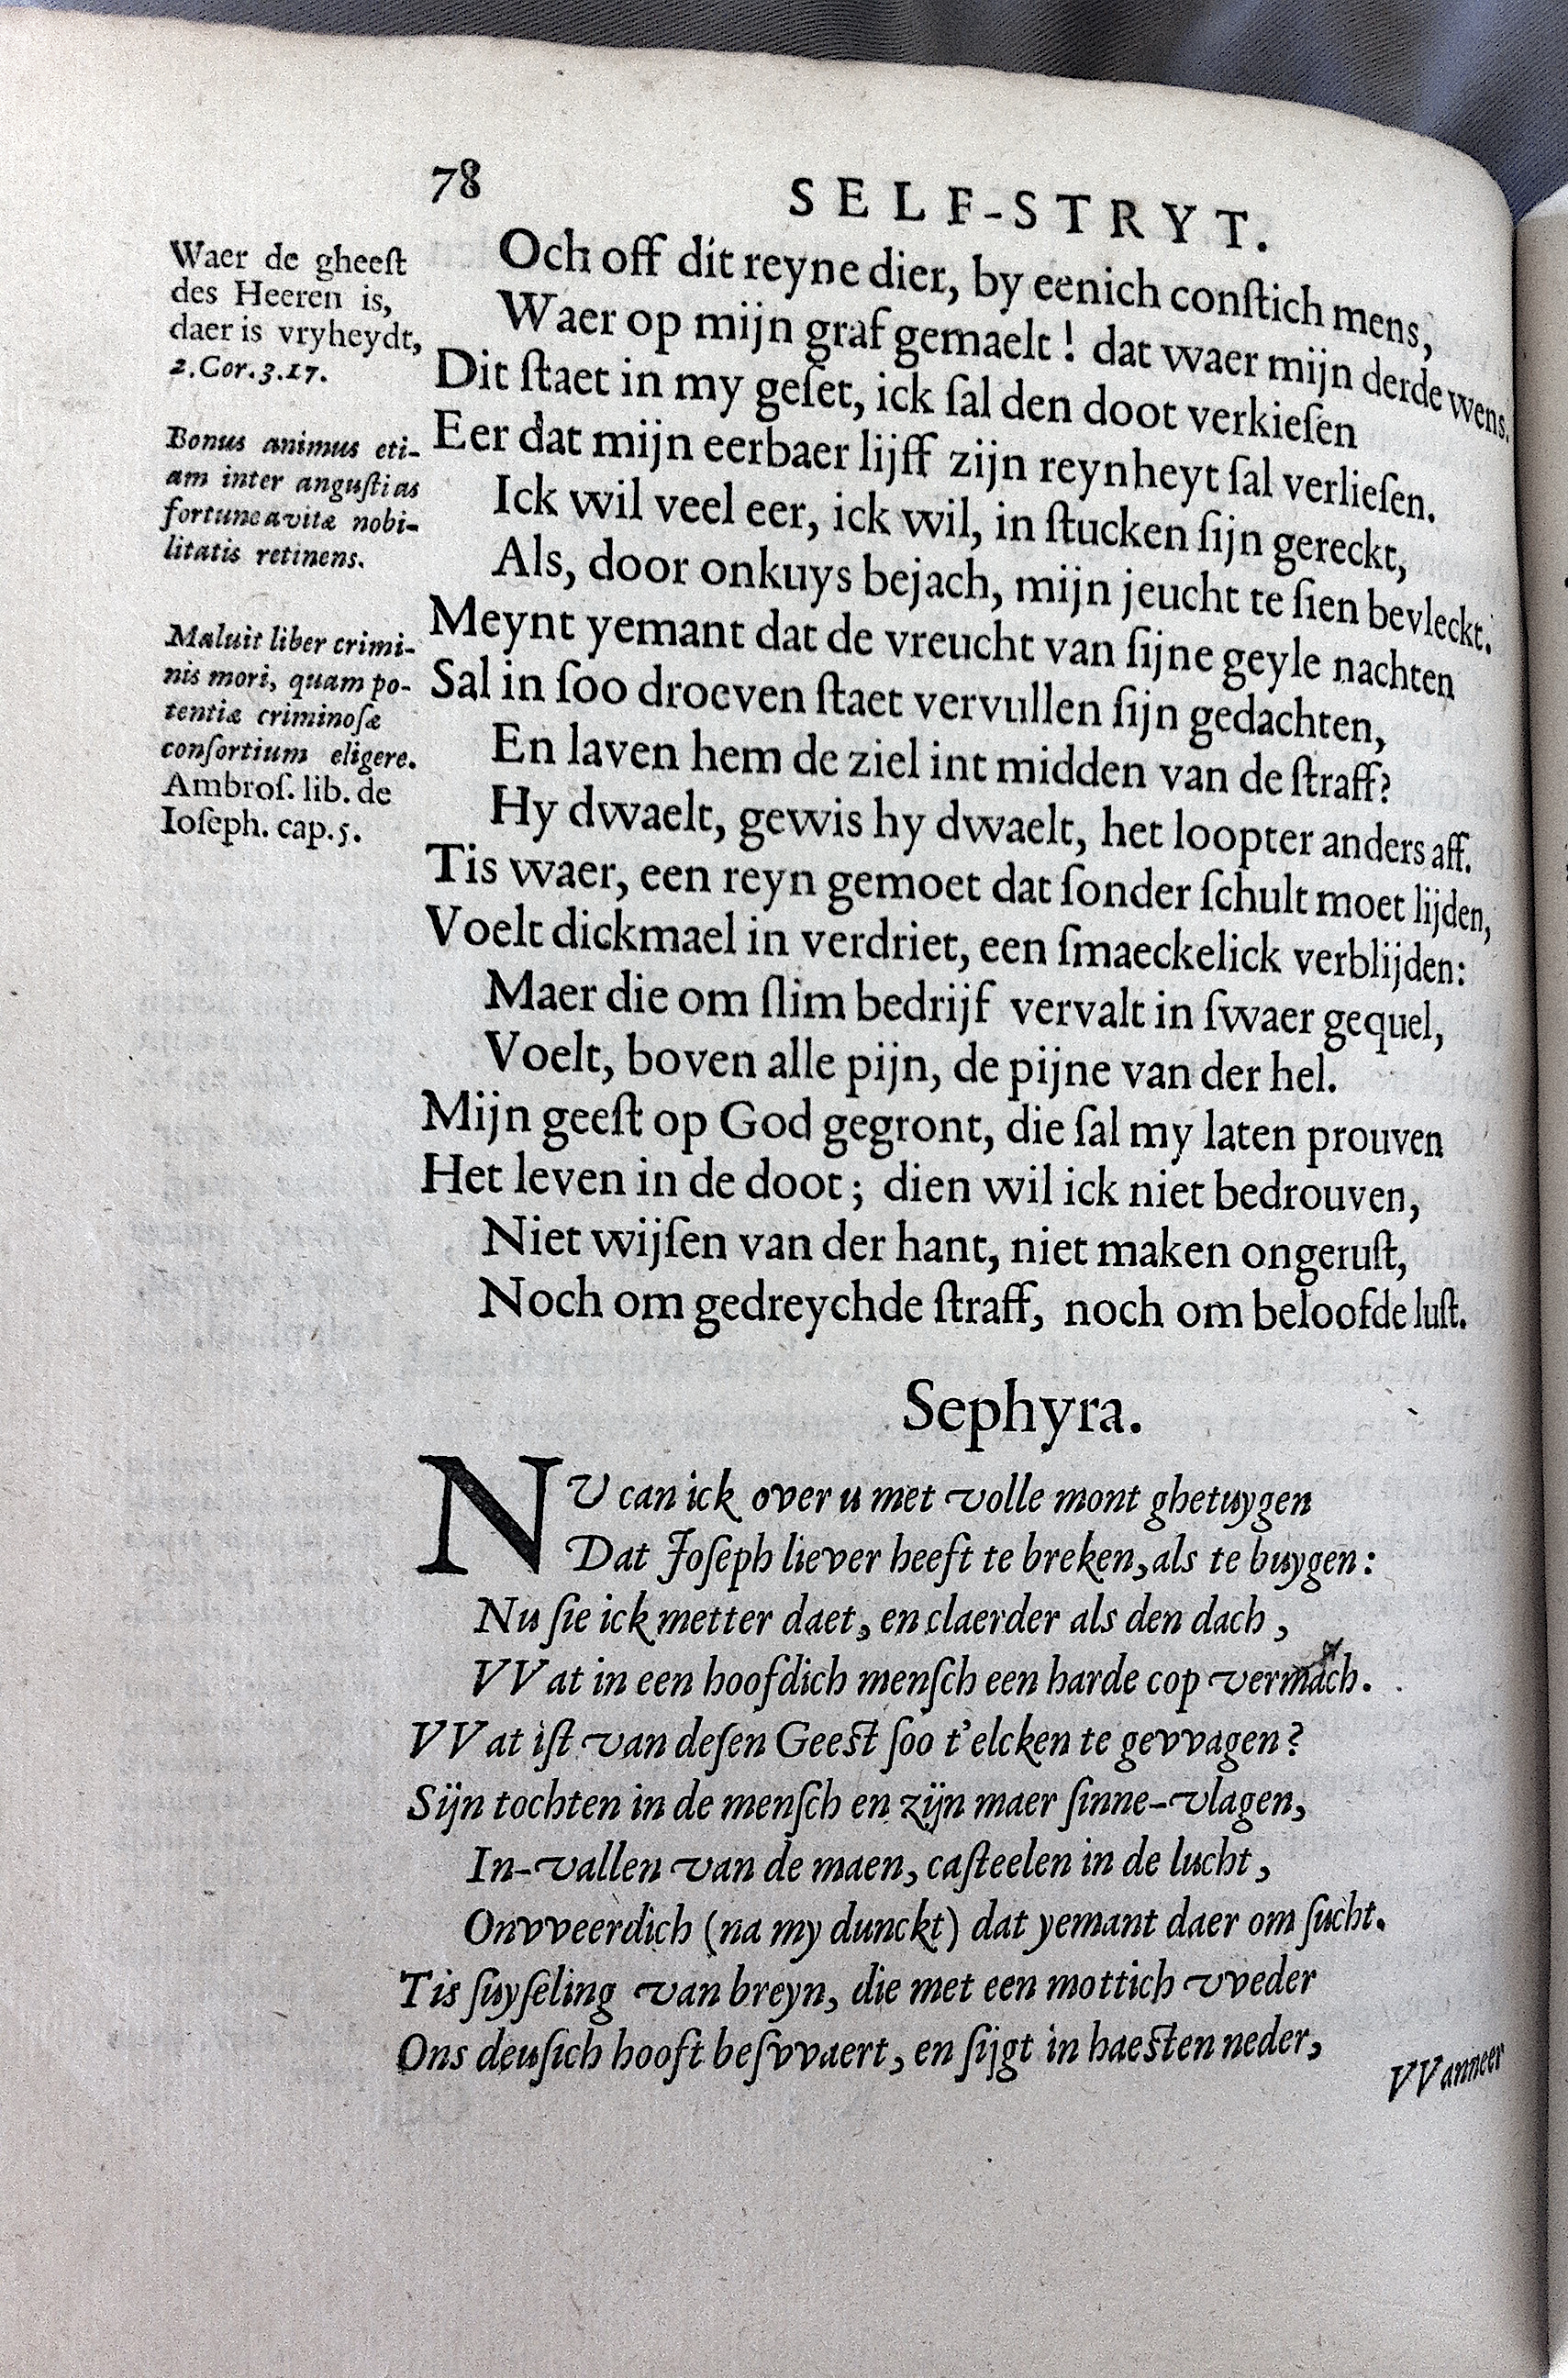 78
SELF-STRYT.
Waer de gheeſt
des Heeren is,
daer is vryheydt,
2.Cor.3.17.
Bonus animus eti-
am inter anguſtias
fortunæ avitæ nobi-
litatis retinens.
Maluit liber crimi-
nis mori, quam po-
tentiæ criminoſæ
conſortium eligere.
Ambroſ. lib. de
Ioſeph. cap.5.
Och off dit reyne dier, by eenich conſtich mens,
Waer op mijn graf gemaelt! dat waer mijn derde wens.
Dit ſtaet in my geſet, ick ſal den doot verkieſen
Eer dat mijn eerbaer lijff zijn reynheyt ſal verlieſen.
Ick wil veel eer, ick wil, in ſtucken ſijn gereckt,
Als, door onkuys bejach, mijn jeucht te ſien bevleckt.
Meynt yemant dat de vreucht van ſijne geyle nachten
Sal in ſoo droeven ſtaet vervullen ſijn gedachten,
En laven hem de ziel int midden van de ſtraff?
Hy dwaelt, gewis hy dwaelt, het loopter anders aff.
Tis waer, een reyn gemoet dat ſonder ſchult moet lijden,
Voelt dickmael in verdriet, een ſmaeckelick verblijden:
Maer die om ſlim bedrijf vervalt in ſwaer gequel,
Voelt, boven alle pijn, de pijne van der hel.
Mijn geeſt op God gegront, die ſal my laten prouven
Het leven in de doot; dien wil ick niet bedrouven,
Niet wijſen van der hant, niet maken ongeruſt,
Noch om gedreychde ſtraff, noch om beloofde luſt.
Sephyra.
NU can ick over u met volle mont ghetuygen
Dat Joſeph liever heeft te breken, als te buygen:
Nu ſie ick metter daet, en claerder als den dach,
VVat in een hoofdich menſch een harde cop vermach.
VVat iſt van deſen Geeſt ſoo t'elcken te gevvagen?
Sijn tochten in de menſch en zijn maer ſinne-vlagen,
In-vallen van de maen, caſteelen in de lucht,
Onvveerdich (na my dunckt) dat yemant daer om ſucht.
Tis ſuyſeling van breyn, die met een mottich vveder
Ons deuſich hooft beſvvaert, en ſijgt in haeſten neder,
VVanneer